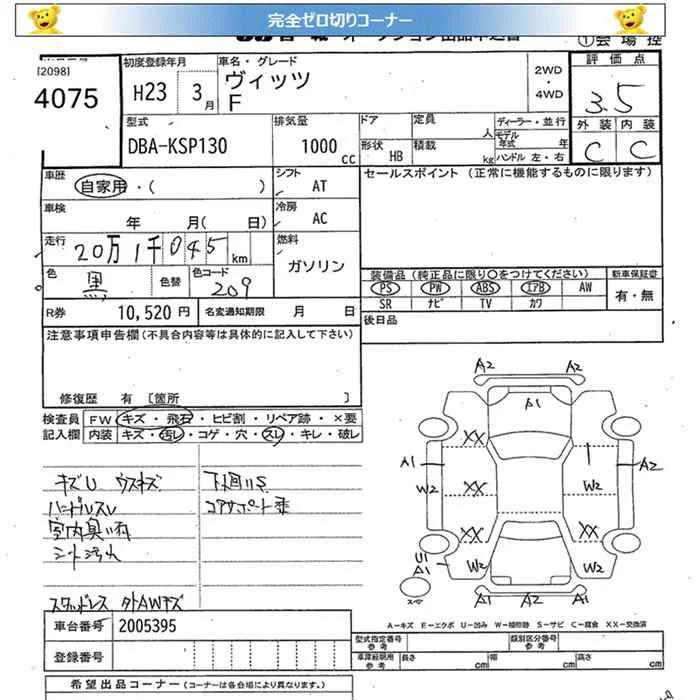 完全ゼロ切りコーナー
①会場控
[2098]
4075
初度登録年月
H23 3月
車名・グレード
ヴィッツ
F
2WD
・
4WD
評価点
3.5
外装 内装
C C
型式
DBA-KSP130
排気量
1000cc
ドア
定員
人
ディーラー・並行
モデル年式 年
形状 HB
積載
kg
ハンドル 左・右
車歴
自家用・( )
シフト
AT
セールスポイント (正常に機能するものに限ります)
車検
年 月( 日)
冷房
AC
走行
20万1千045km
燃料
ガソリン
色
黒
色替
色コード
209
装備品(純正品に限り○をつけてください)
新車保証書
PS PW ABS エアB AW
SR ナビ TV カワ
有・無
R券
10,520円
名変通知期限 月 日
後日品
注意事項申告欄(不具合内容等は具体的に記入して下さい)
修復歴 有 [箇所 ]
検査員
記入欄
FW キズ・飛石・ヒビ割・リペア跡・×要
内装 キズ・汚レ・コゲ・穴・スレ・キレ・破レ
キズU ウスキズ
下廻りS
ハンドルスレ
コアサポート
室内臭い有
シート汚れ
スタッドレス 外AWキズ
A2 A2
A1
XX
A1 W2 W2 A2
XX
XX W2
U1
A1 W2 W2
A1 A2 A1
A-キズ E-エクボ U-凹み W-補修跡 S-サビ C-腐食 XX-交換済
車台番号 2005395
型式指定番号
参考
類別区分番号
参考
登録番号
車庫証明用
参考
長さ cm 幅 cm 高さ cm
希望出品コーナー(コーナーは各会場により異なります。)